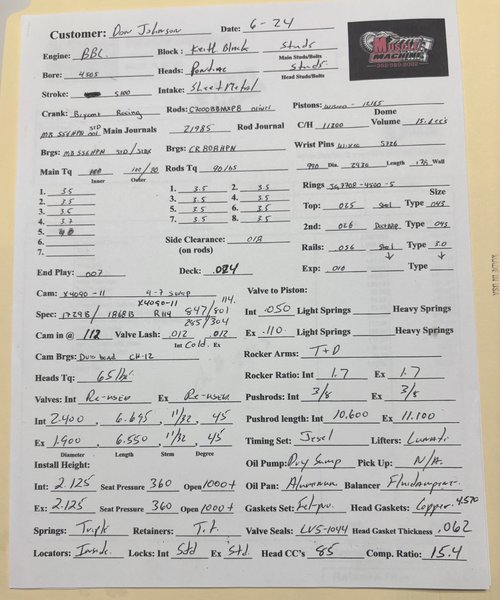 Customer: Don Johnson Date: 6-24
MUSCLE MACHINE
Engine: BBC Block: Keith Black Studs
Main Studs/Bolts
Bore: 4.505 Heads: Pontiac Studs
Head Studs/Bolts
Stroke: Intake: Sheet Metal
Crank: Bryant Racing Rods: Pistons:
Dome
Main Journals 2.1985 Rod Journal C/H Volume
Brgs: Brgs: Wrist Pins
Main Tq Rods Tq 90 lbs .990 Dia. 2.930 Length Wall
Inner Outer
1. 3.5 1. 3.5 2. 3.5 Rings
Size
2. 3.5 3. 3.5 4. 3.5 Top: .025 Steel Type .043
3. 3.5 5. 3.5 6. 3.5
4. 7. 3.5 8. 3.5 2nd: .026 Type .043
5. Side Clearance:
6. (on rods) Rails: .056 Steel Type 3.0
7.
End Play: .007 Deck: .024 Exp: .010 Type
Cam: X4090-11 4-7 swap Valve to Piston:
X4090-11 114.
Spec: 847/801 Int .050 Light Springs Heavy Springs
285/304
Cam in @ 112 Valve Lash: .012 .012 Ex .110 Light Springs Heavy Springs
Int Cold. Ex
Cam Brgs: Dura bond CH-12 Rocker Arms: T+D
Heads Tq: 65 lbs Rocker Ratio: Int 1.7 Ex 1.7
Valves: Int Re-used Ex Re-used Pushrods: Int 3/8 Ex 3/8
Int 2.400, 6.645, 11/32, 45 Pushrod length: Int 10.600 Ex 11.100
Ex 1.900, 6.550, 11/32, 45 Timing Set: Jesel Lifters: Lunati
Diameter Length Stem Degree
Install Height: Oil Pump: Dry Sump Pick Up: N/A.
Int: 2.125 Seat Pressure 360 Open 1000+ Oil Pan: Aluminum Balancer Fluidampner
Ex: 2.125 Seat Pressure 360 Open 1000+ Gaskets Set: Fel-pro Head Gaskets: Copper 4.570
Springs: Triple Retainers: T.i. Valve Seals: LVS-1044 Head Gasket Thickness .062
Locators: Inside. Locks: Int Std Ex Std. Head CC's 85 Comp. Ratio: 15.4